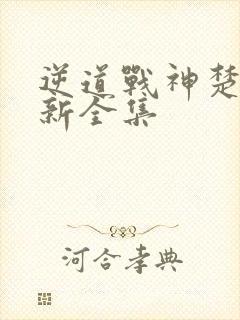 逆道戰神楚
新全集
河合孝典